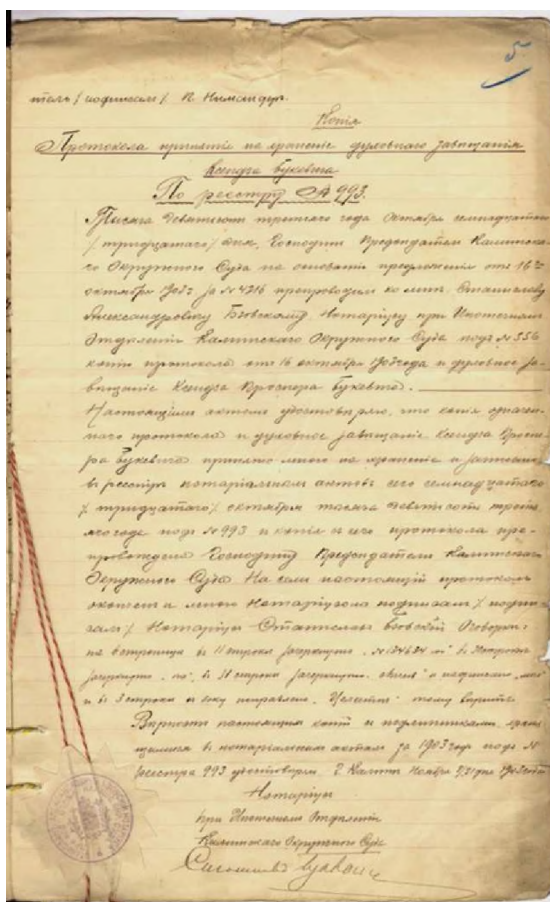 5.
таль /подписал/ К.
Копія
Протокола принятія на храненіе духовнаго завѣщанія
Ксендза Букевича
По реестру № 993.
Тысяча девятьсотъ третьяго года Октября семнадцатаго
/тридцатаго/ дня, Господинъ Предсѣдатель Калишска-
го Окружнаго Суда на основаніи предложенія отъ 16го
октября 1903 г за № 4216 препроводилъ ко мнѣ Станиславу
Александровичу Нотаріусу при Ипотечномъ
Отдѣленіи Калишскаго Окружнаго Суда подъ № 556
копію протокола отъ 16 октября 1903 года и духовное за-
вѣщаніе Ксендза Проспера Букевича.
Настоящимъ актомъ удостовѣряю, что копія означен-
наго протокола и духовное завѣщаніе Ксендза Проспе-
ра Букевича принято мною на храненіе и записано
въ реестръ нотаріальныхъ актовъ сего семнадцатаго
/тридцатаго/ октября тысяча девятьсотъ треть-
яго года подъ № 993 и копія съ сего протокола пре-
провождена Господину Предсѣдателю Калишскаго
Окружнаго Суда На семъ настоящій протоколъ
оконченъ и мною Нотаріусомъ подписанъ /подпи-
салъ/ Нотаріусъ Станиславъ Оговорки:
на 6 страницѣ въ 11 строкѣ зачеркнуто
зачеркнуто въ 31 строкѣ зачеркнуто и надписано
и въ 3 строкѣ исправлено тому вѣрить
Вѣрность настоящей копіи съ подлинникомъ, хран-
щимся въ нотаріальныхъ актахъ за 1903 годъ подъ №
реестра 993 удостовѣряю. Г. Калишъ Ноября дня 1903 года
Нотаріусъ
при Ипотечномъ Отдѣленіи
Калишскаго Окружнаго Суда